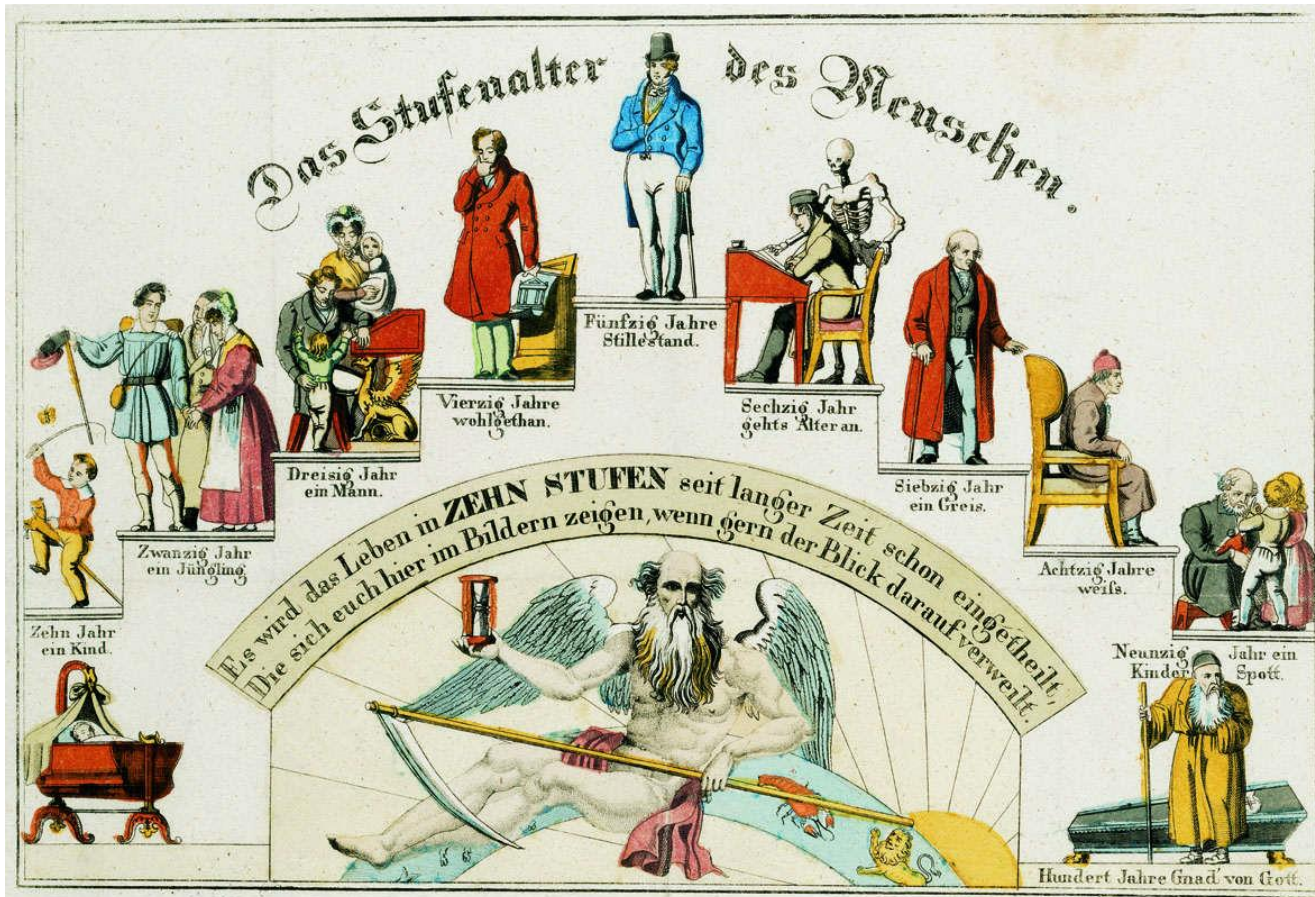 Das Stufenalter des Menschen.
Zehn Jahr
ein Kind.
Zwanzig Jahr
ein Jüngling.
Dreisig Jahr
ein Mann.
Vierzig Jahre
wohlgethan.
Fünfzig Jahre
Stillestand.
Sechzig Jahr
gehts Alter an.
Siebzig Jahr
ein Greis.
Achtzig Jahre
weiſs.
Neunzig Jahr ein
Kinder Spott.
Hundert Jahre Gnad' von Gott.
Es wird das Leben in ZEHN STUFEN seit langer Zeit schon eingetheilt,
Die sich euch hier im Bildern zeigen, wenn gern der Blick darauf verweilt.